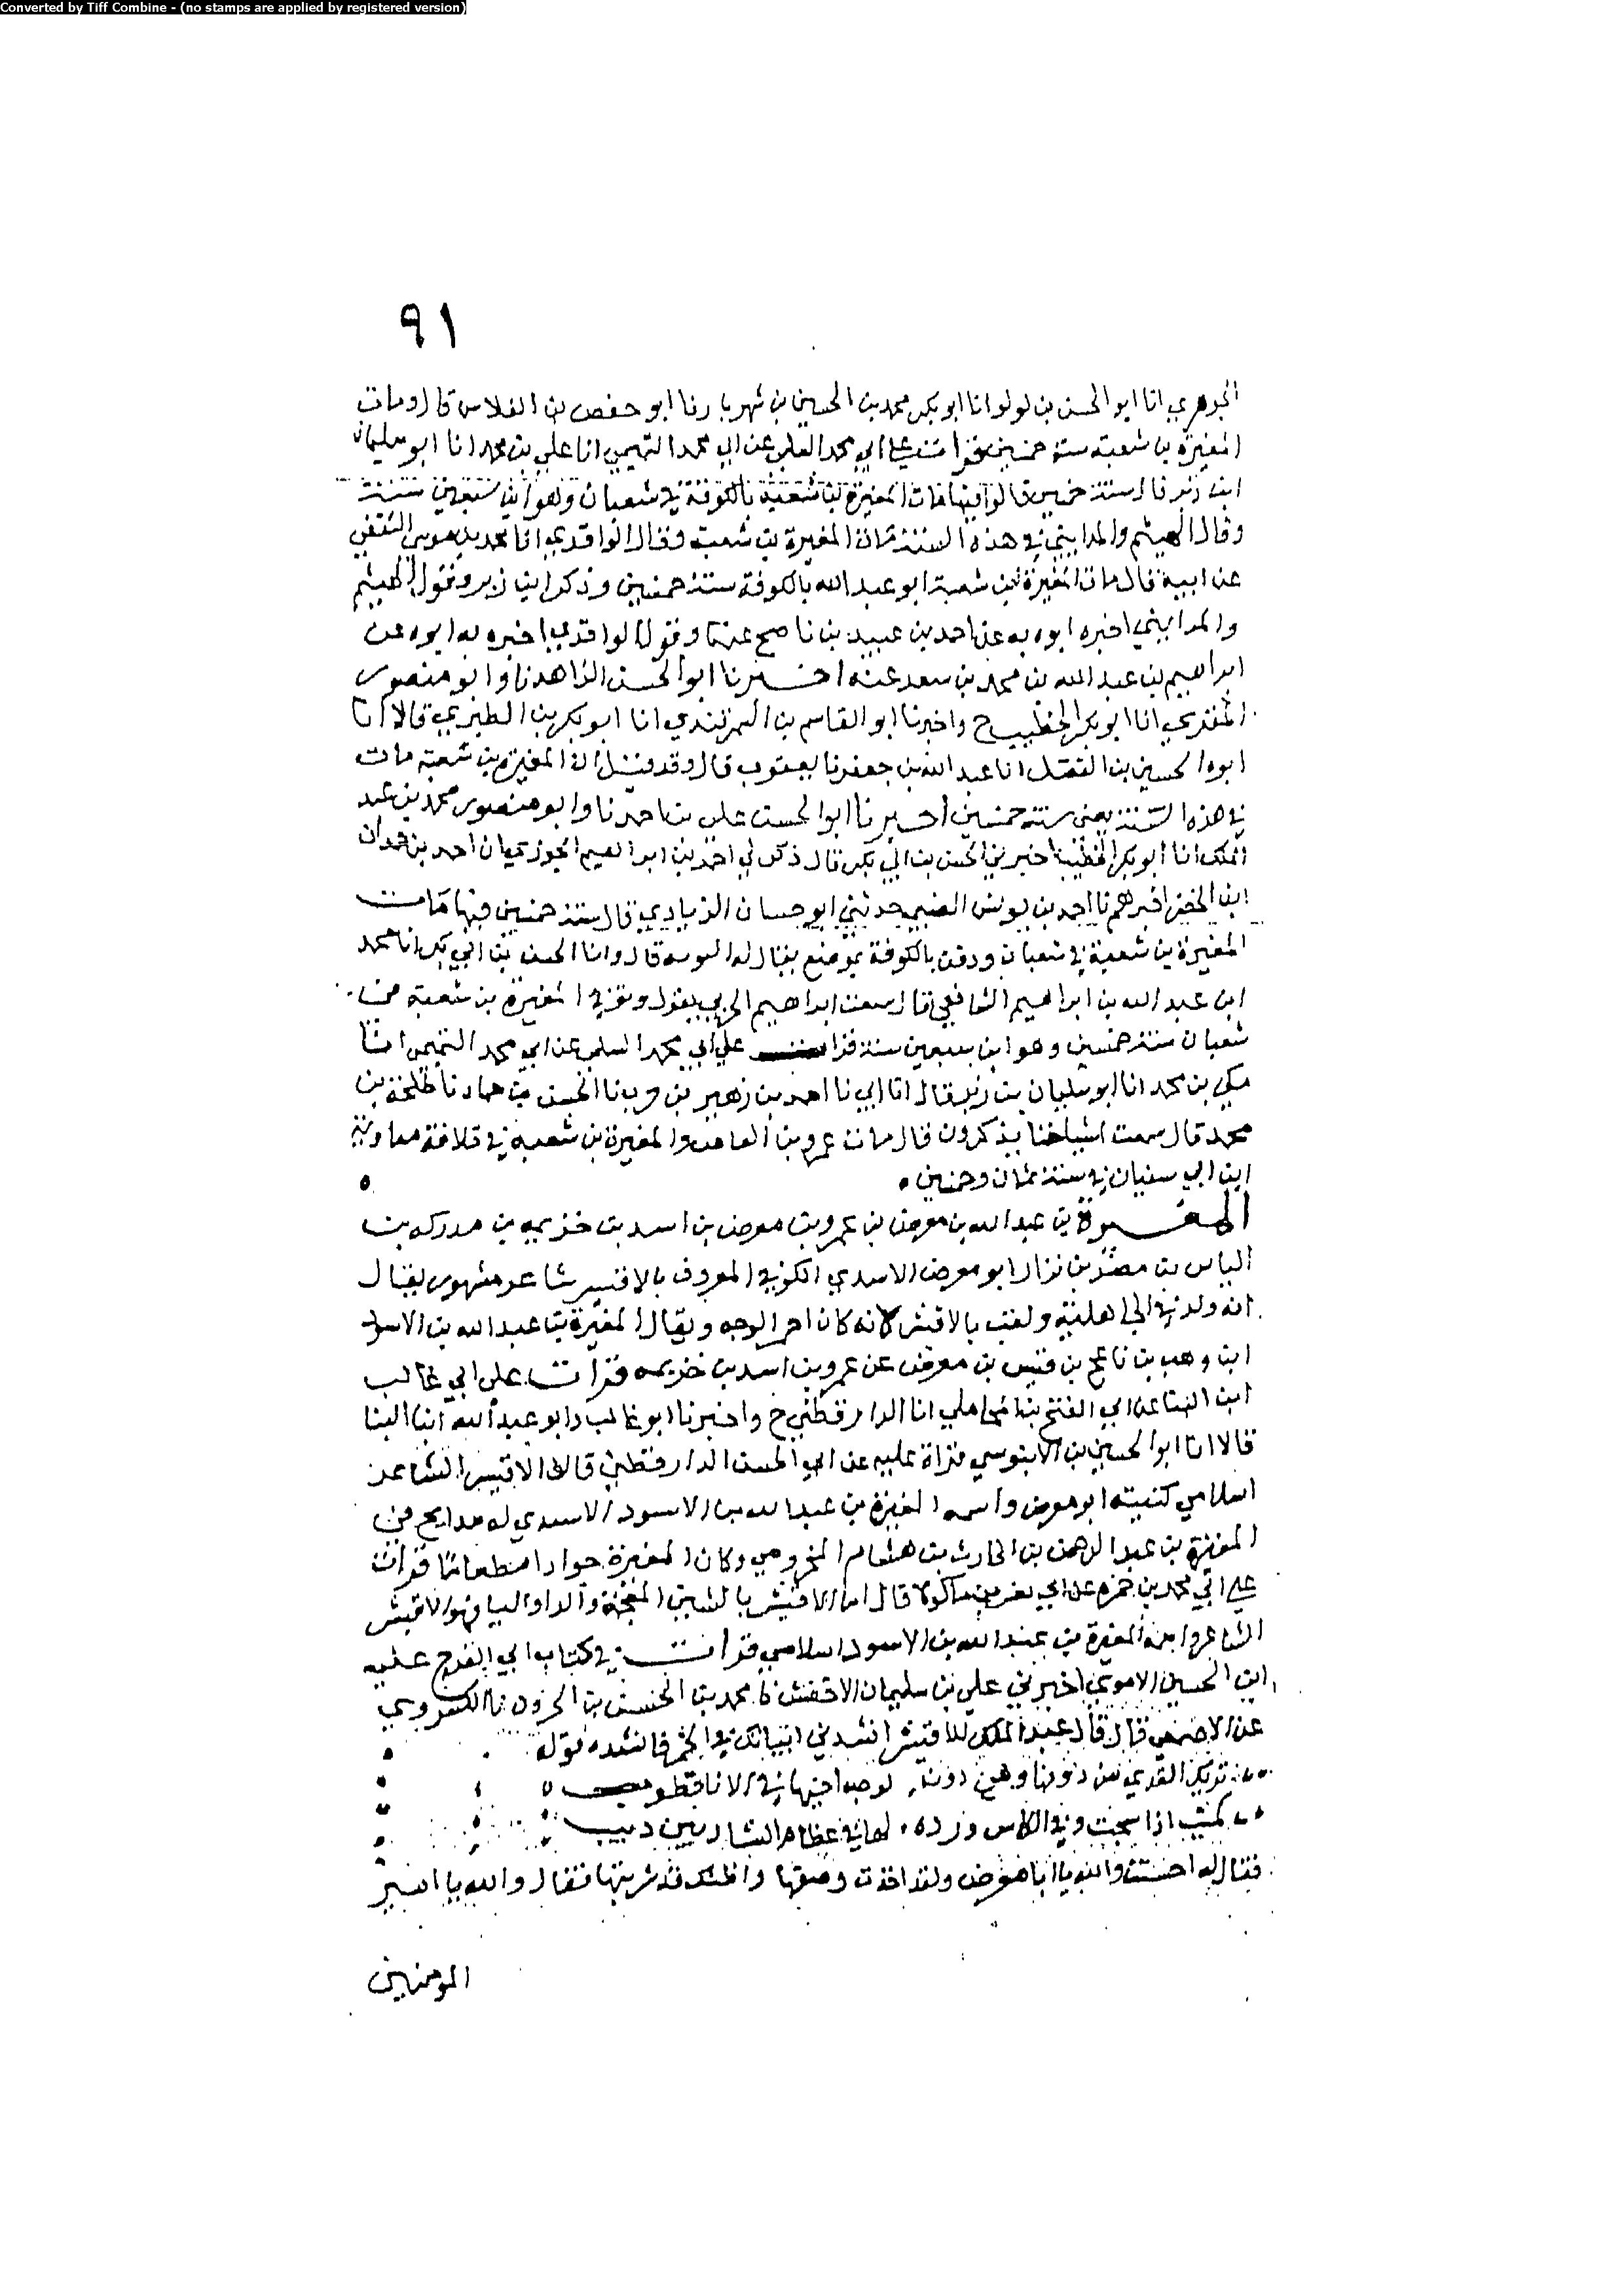 Converted by Tiff Combine - (no stamps are applied by registered version)
٩١
الجوهري انا ابو الحسن بن لولو انا ابو بكر محمد بن الحسين بن شهريا رنا ابو حفص بن الفلاس قال ومات
المغيرة بن شعبة سنة خمسين قرات على ابي محمد السلمي عن ابي محمد التميمي انا علي بن محمد انا ابو سليمان
ابن زبر قال سنة خمسين قالوا فيها مات المغيرة بن شعبة بالكوفة في شعبان وهو ابن سبعين سنة
وقال الهيثم والمدايني في هذه السنة مات المغيرة بن شعبة وقال الواقدي انا محمد بن موسى الثقفي
عن ابيه قال مات المغيرة بن شعبة ابو عبد الله بالكوفة سنة خمسين وذكر ابن زبر وقول الهيثم
والمدايني اخبره ابوه به عن احمد بن عبيد بن ناصح عنهما وقول الواقدي اخبره به ابوه عن
ابراهيم بن عبد الله بن محمد بن سعد عنه اخبرنا ابو الحسن الزاهد نا وابو منصور
المقري انا ابو بكر الخطيب ح واخبرنا ابو القاسم بن السمرقندي انا ابو بكر بن الطبري قالا انا
ابو الحسين بن الفضل انا عبد الله بن جعفر نا يعقوب قال وقد قيل ان المغيرة بن شعبة مات
في هذه السنة يعني سنة خمسين اخبرنا ابو الحسن علي بن احمد نا وابو منصور محمد بن عبد
الملك انا ابو بكر الخطيب اخبرني الحسن بن ابي بكر قال ذكر لي احمد بن ابراهيم الجوزي ان احمد بن حمدان
ابن الخضر اخبرهم نا احمد بن يونس الضبي حدثني ابو حسان الزيادي قال سنة خمسين فيها مات
المغيرة بن شعبة في شعبان ودفن بالكوفة بموضع يقال له قال وانا الحسن بن ابي بكر انا محمد
ابن عبد الله بن ابراهيم الشافعي قال سمعت ابراهيم الحربي يقول وتوفي المغيرة بن شعبة في
شعبان سنة خمسين وهو ابن سبعين سنة قرات على ابي محمد السلمي عن ابي محمد التميمي انا
مكي بن محمد انا ابو سليمان بن زبر قال انا ابي نا احمد بن زهير بن حرب نا الحسن بن حماد نا طلحة بن
محمد قال سمعت اشياخنا يذكرون قال مات عمرو بن العاص والمغيرة بن شعبة في خلافة معاوية
ابن ابي سفيان في سنة ثمان وخمسين
المغيرة بن عبد الله بن معرض بن عمرو بن معرض بن اسد بن خزيمه بن مدركه بن
الياس بن مضر بن نزار ابو معرض الاسدي الكوفي المعروف بالاقيشر شاعر مشهور يقال
انه ولد في الجاهلية ولقب بالاقيشر لانه كان احمر الوجه ويقال المغيرة بن عبد الله بن الاسود
ابن وهب بن ناعج بن قيس بن معرض عن عمرو بن اسد بن خزيمه قرات على ابي غالب
ابن البنا عن ابي الفتح بن المحاملي انا الدارقطني ح واخبرنا ابو غالب وابو عبد الله ابنا البنا
قالا انا ابو الحسين بن الابنوسي قراة عليه عن ابي الحسن الدارقطني قال الاقيشر الشاعر
اسلامي كنيته ابو معرض واسمه المغيرة بن عبد الله بن الاسود الاسدي له مدايح في
المغيرة بن عبد الرحمن بن الحارث بن هشام المخزومي وكان المغيرة جوادا مطعاما قرات
على ابي محمد بن حمزه عن ابي نصر بن ماكولا قال اما الاقيشر بالشين المعجمة والراو واليا فهو الاقيشر
الشاعر المغيرة بن عبد الله بن الاسود اسلامي قرات في كتاب ابي الفرج علي
ابن الحسين الاموي اخبرني علي بن سليمان الاخفش نا محمد بن الحسن بن الحرون نا الكسروي
عن الاصمعي قال قال عبد الملك للاقيشر انشدني ابياتك في الخمر فانشده قوله
تريك القذى من دونها وهي دونه لوجه اخيها في الانا قطوب
كميت اذا شجت وفي الكاس ورده لها في عظام الشاربين دبيب
فقال له احسنت والله يا ابا معرض ولقد اخذت وصفها واظنك قد شربتها فقال والله يا امير
المومنين